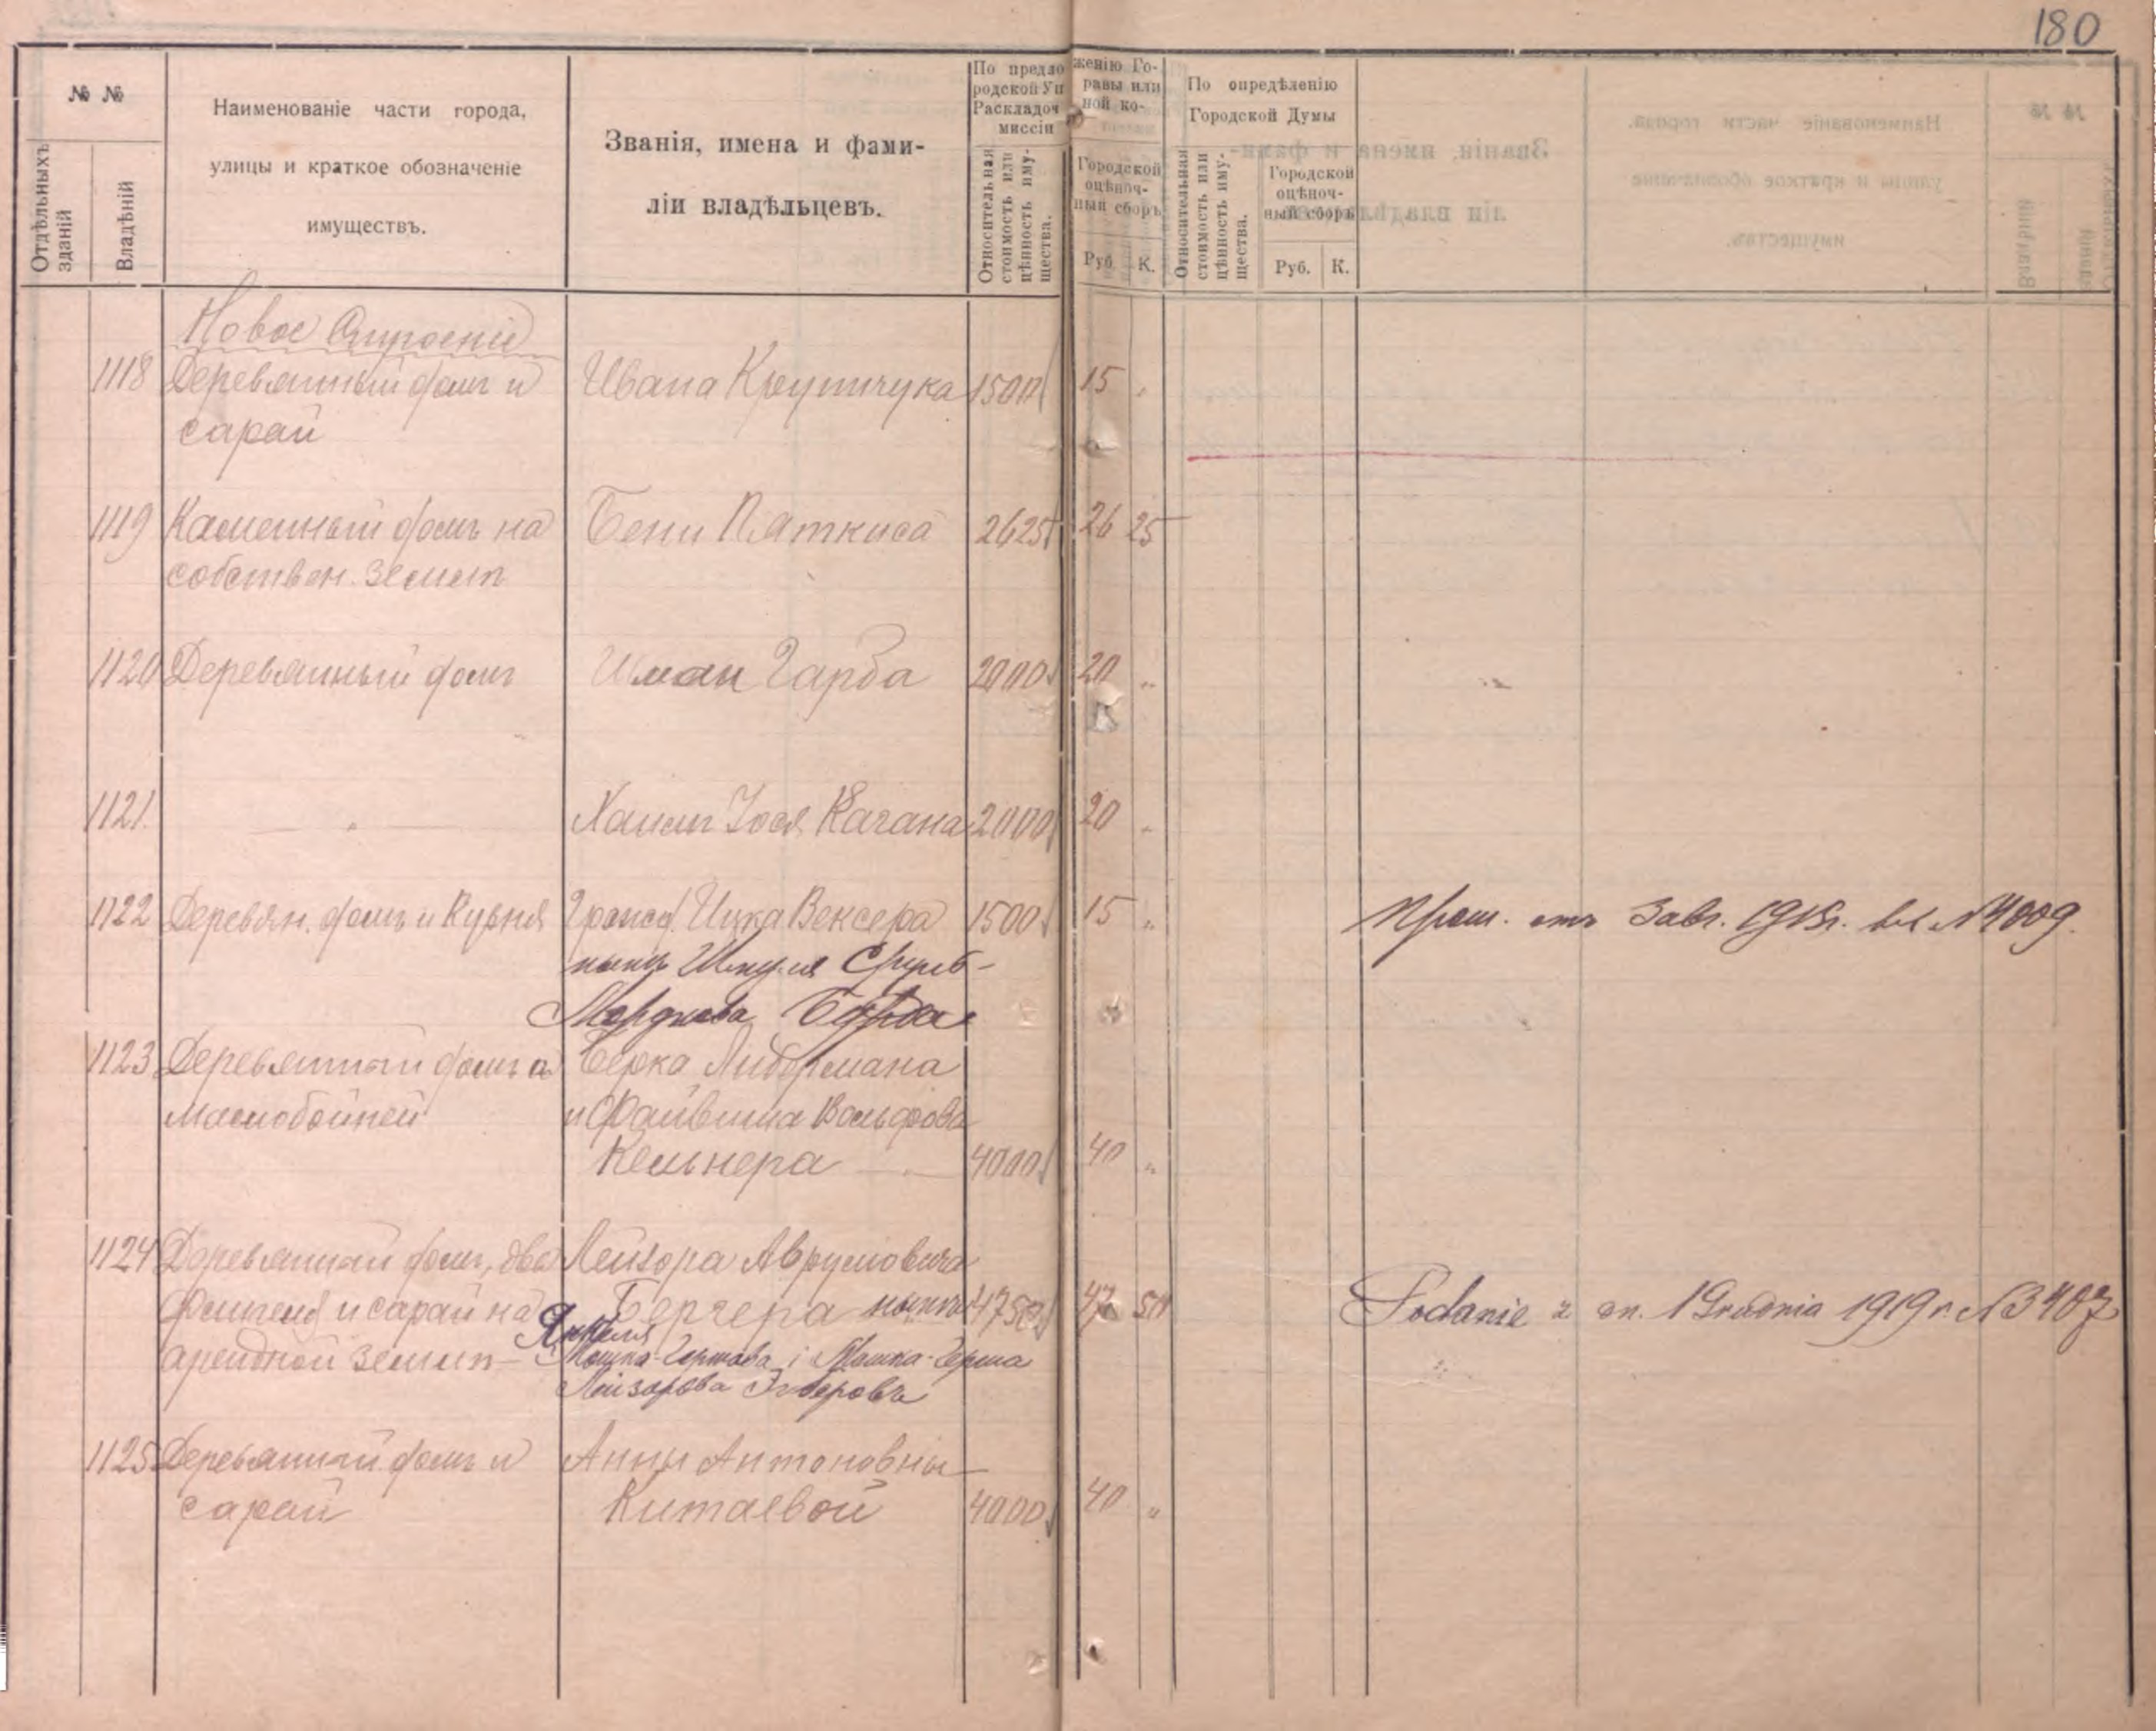 180
№ №
Отдѣльныхъ зданій
Владѣній
Наименованіе части города,
улицы и краткое обозначеніе
имуществъ.
Званія, имена и фами-
ліи владѣльцевъ.
По предложенію Го-
родской Управы или
Раскладочной ко-
миссіи
Относительная
стоимость или
цѣнность иму-
щества.
Городской
оцѣноч-
ный сборъ
Руб. К.
По опредѣленію
Городской Думы
Относительная
стоимость или
цѣнность иму-
щества.
Городской
оцѣноч-
ный сборъ
Руб. К.
Новое Строеніе
1118 Деревянный домъ и Ивана Крупчука 1500 15 "
сарай
1119 Каменный домъ на Бени Пяткиса 2625 26 25
собствен. землѣ
1120 Деревянный домъ Гарба 2000 20 "
1121. — " — Хаимъ Іося Кагана 2000 20 "
1122 Деревян. домъ и Кузня Ицка Вексера 1500 15 " Прош. отъ 3 авг. 1918г. № 4009.
нынѣ Шмуля
Мордкова
1123 Деревянный домъ Берка Либермана
маслобойней и Файвиша Вольфова
Кельнера — 4000 40 "
1124 Деревянный домъ, два Лейзора Аврумовича
флигеля и сарай на Бергера нынѣ 4750 47 50 Podanie z dn. 1 Grudnia 1919 r. N 3407
Янкеля
арендной землѣ — Мошка-Гершова і Мошка-Герша
Лейзорова
1125 Деревянный домъ и Анны Антоновны
сарай Китаевой 4000 40 "